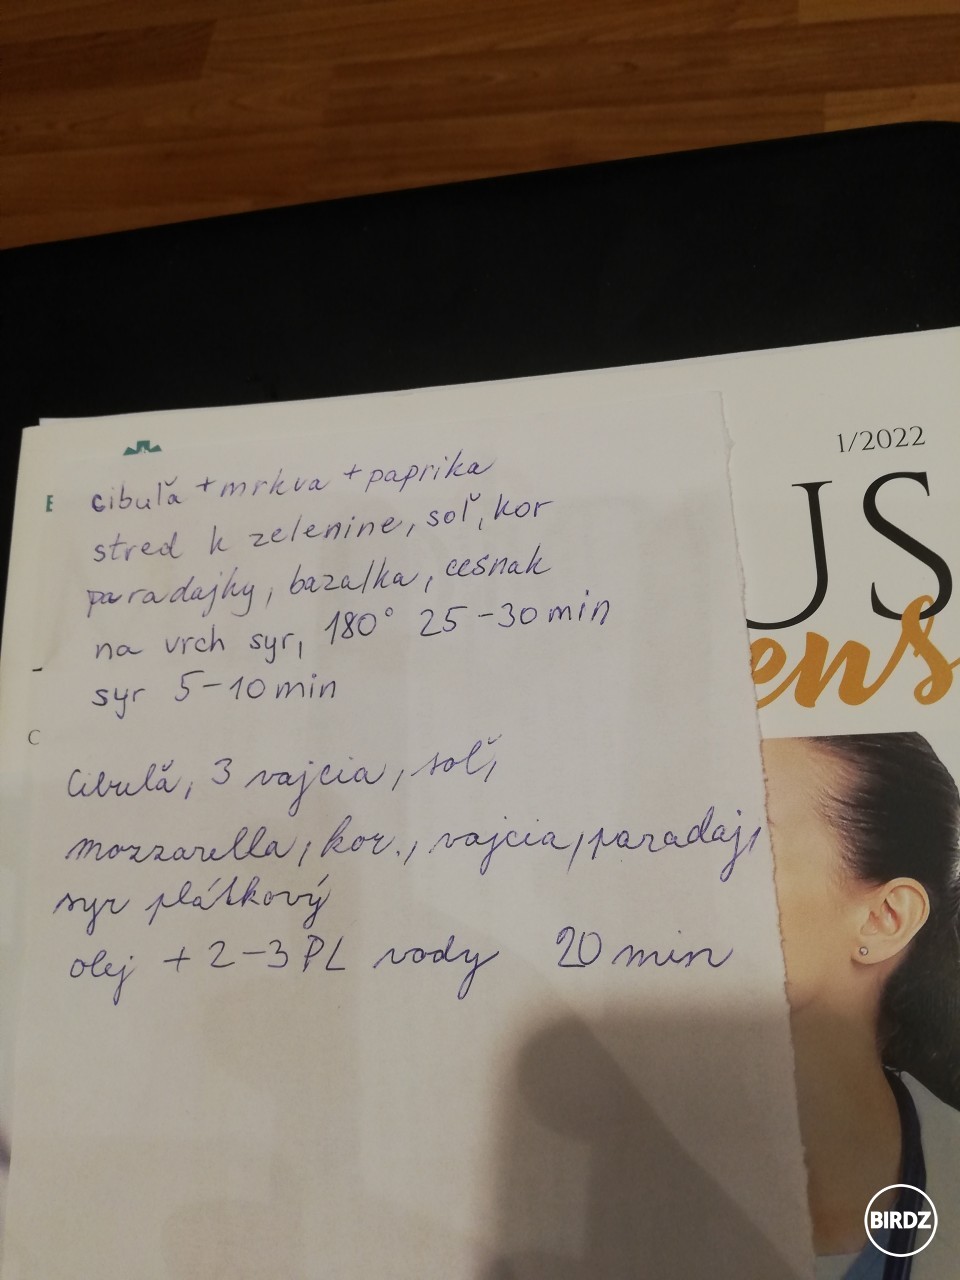 1/2022
US
ens
E
C
cibuľa + mrkva + paprika
stred k zelenine, soľ, kor
paradajky, bazalka, cesnak
na vrch syr, 180° 25-30 min
syr 5-10 min
Cibuľa, 3 vajcia, soľ,
mozzarella, kor., vajcia, paradaj,
syr plátkový
olej + 2-3 PL vody 20 min
BIRDZ